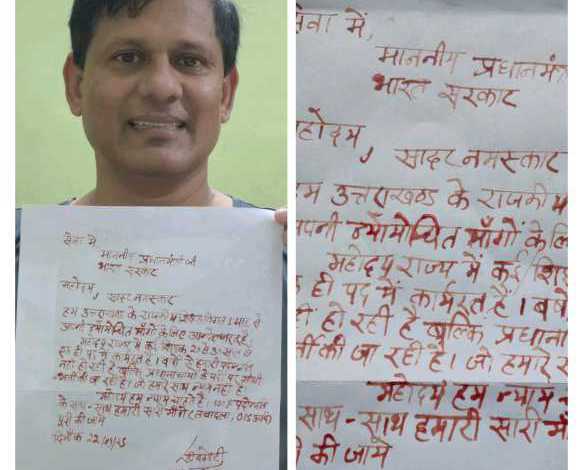 सेवा में
माननीय प्रधानमंत्री जी
भारत सरकार
महोदय, सादर नमस्कार
हम उत्तराखण्ड के राजकीय 1 माह से
अपनी न्यायोचित माँगों के लिए
महोदय राज्य में कई शिक्षक साल से
एक ही पद में कार्यरत हैं। वर्षों से
नहीं हो रही है बल्कि प्रधानाचार्य के पद पर सीधी
भर्ती की जा रही है। जो हमारे साथ
महोदय हम न्याय चाहते हैं।
के साथ-साथ हमारी सारी माँगें
पूरी की जाये
दिनाँक
सेवा में,
माननीय प्रधानमं
भारत सरकार
होदय, सादर नमस्कार
म उत्तराखण्ड के राजकीय
पनी न्यायोचित माँगों के लि
महोदय राज्य में कई शिक्ष
ही पद में कार्यरत हैं। वर्ष
हो रही है बल्कि प्रधाना
की जा रही है। जो हमारे स
महोदय हम न्याय
साथ-साथ हमारी सारी माँ
की जाये